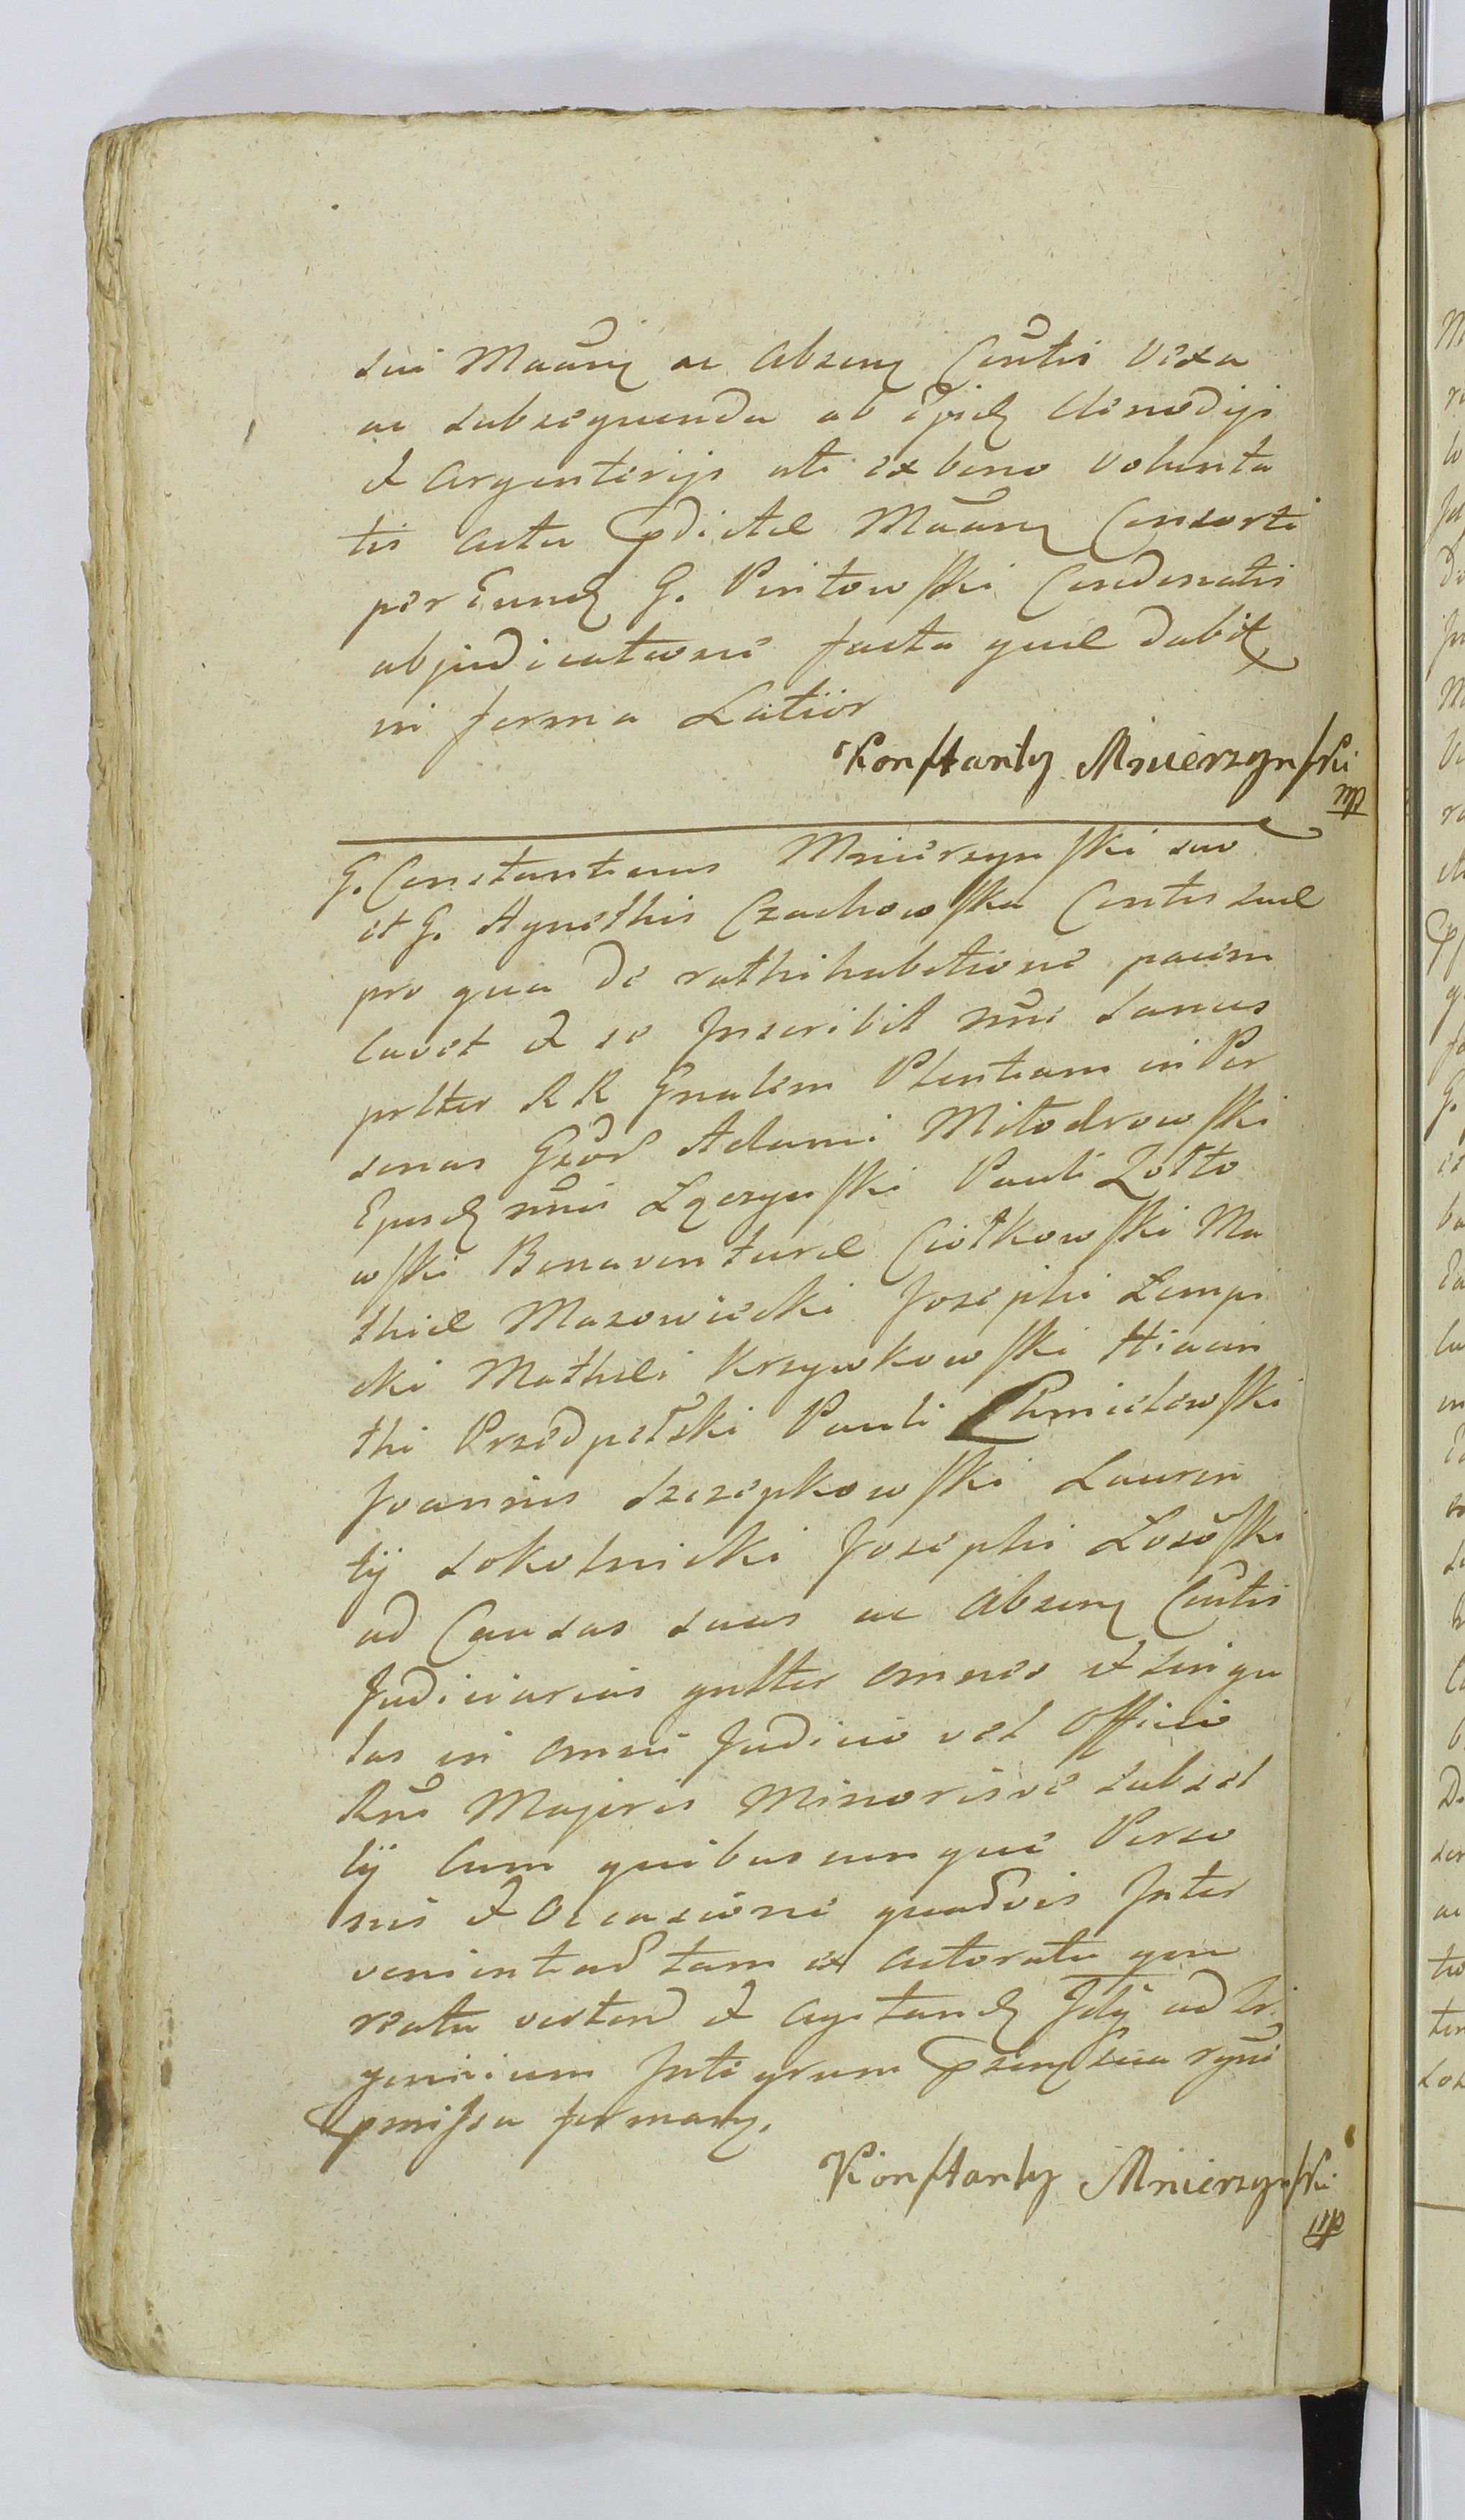 sui Maum ac absenq Contis vera
ac subsequenda ab ijsd Clenodijs
et argenterijs uti ex bono volunta
tis actu pdictae Maum Consorti
per Eund G. Piritowski Condonatis
abjudicatione facta quae dabit
in forma Latior
Konstanty Mnierzynski
mp
G. Constantinus Mnierzynski suo
et G. Agnethis Czachowska Contis suae
pro qua de rathihabitione pacem
cavet et se Inscribit nne sanus
prltter RR Gnalem Plentiam in Per
sonas Gsod Adami Mitodrowski
Ejusd nnis Lączynski Pauli Zołto
wski Bonaventurae Ciołkowski Ma
thiae Mazowiecki Josephi Lempi
cki Mathaei Krzywkowski Hiacin
thi Przedpełski Pauli Chmielewski
Joannis Szczepkowski Lauren
tij Sokolnicki Josephi Łososki
ad Causas suas ac absenq Contis
Judiciarias gnltter omnes et singu
las in omni Judicio vel officio
Rni Majoris Minorisve subsel
lij cum quibuscunque Perso
nis et occasione quadvis Inter
venientad tam ex actoratu quam
reatu verten et agitand Idq ad Tri
gennium Integrum psenq sua rgni
pmissa formanq.
Konstanty Mnierzynski
mp